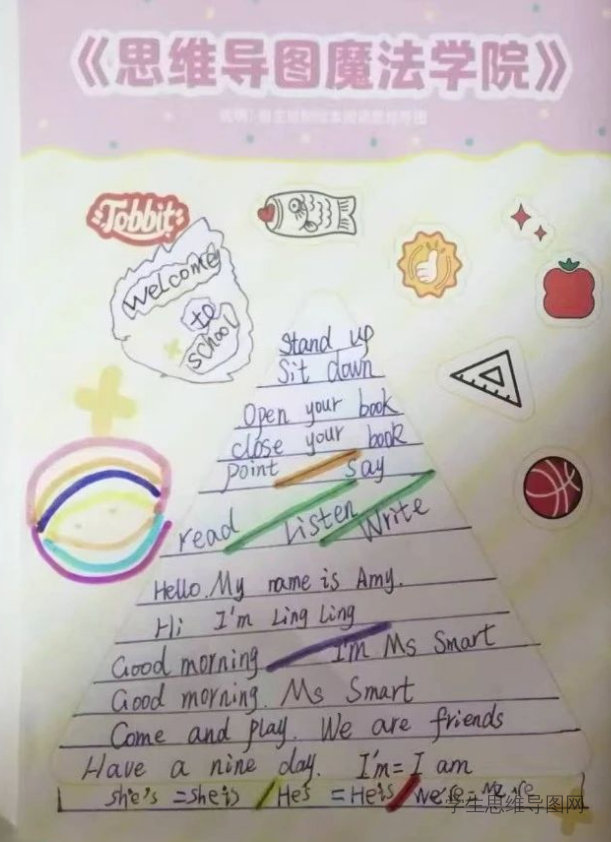 《思维导图魔法学院》
Tobbit
Welcome
to
school
Stand up
Sit down
Open your book
close your book
point say
read Listen Write
Hello. My name is Amy.
Hi I'm Ling Ling
Good morning I'm Ms Smart
Good morning. Ms Smart
Come and play. We are friends
Have a nine day. I'm = I am
she's = she is / He's = He is / we're =
学生思维导图网